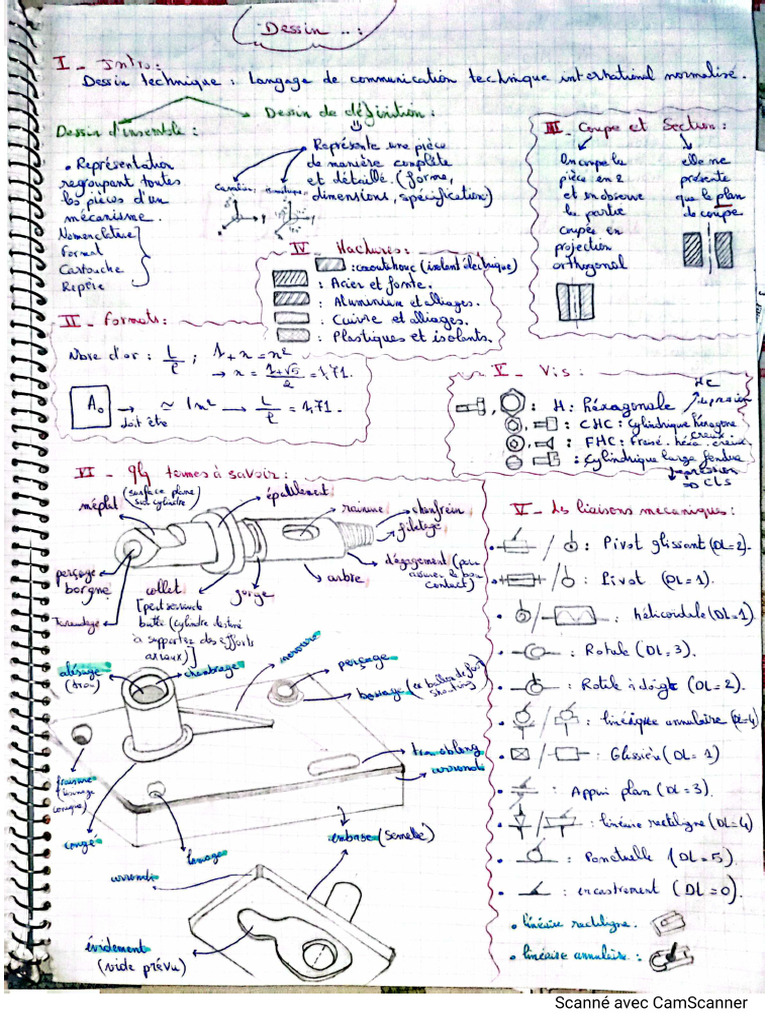 Dessin ..:
I_ Intro:
Dessin technique : langage de communication technique international normalisé.
Dessin d'ensemble :
• Représentation
regroupant toutes
les pièces d'un
mécanisme.
Nomenclature
Format
Cartouche
Repère
Dessin de définition :
• Représente une pièce
de manière complète
et détaillé. (forme,
dimensions, spécification)
III_ Coupe et Section :
On coupe la
pièce en 2
et on observe
la partie
coupée en
projection
orthogonal
elle ne
présente
que le plan
de coupe
IV_ Hachures:
: caoutchouc (isolant électrique)
: Acier et fonte.
: Aluminium et alliages.
: Cuivre et alliages.
: Plastiques et isolants.
II_ Formats:
Nbre d'or : L/l ; 1+x = x²
→ x = 1+√5/2 = 1,71.
A₀ → ≈ 1m² → L/l = 1,71.
doit être
V_ Vis :
HC
: H: héxagonale
: CHC: Cylindrique héxagone
creux
: FHC: Fraisé. héxa. creuse
: Cylindrique large fendue
CLS
VI_ qlq termes à savoir :
méplat (surface plane
sur cylindre)
épaulement
rainure
chanfrein
filetage
perçage
borgne
Taraudage
collet
[peut servir de
butée (cylindre destiné
à supporter des efforts
axiaux)]
gorge
arbre
dégagement (pour
contact)
alésage
(trou)
chambrage
nervure
perçage
bossage
fraisure
trou oblong
arrondi
congé
lamage
embase (semelle)
arrondi
évidement
(vide prévu)
V_ Les liaisons mecaniques :
: Pivot glissant (DL=2).
: Pivot (DL=1).
: hélicoïdale (DL=1)
: Rotule (DL=3).
: Rotule à doigt (DL=2).
: linéique annulaire (DL=4)
: Glissière (DL=1)
: Appui plan (DL=3).
: linéaire rectiligne (DL=4)
: Ponctuelle (DL=5).
: encastrement (DL=0).
• linéaire rectiligne.
• linéaire annulaire :
Scanné avec CamScanner